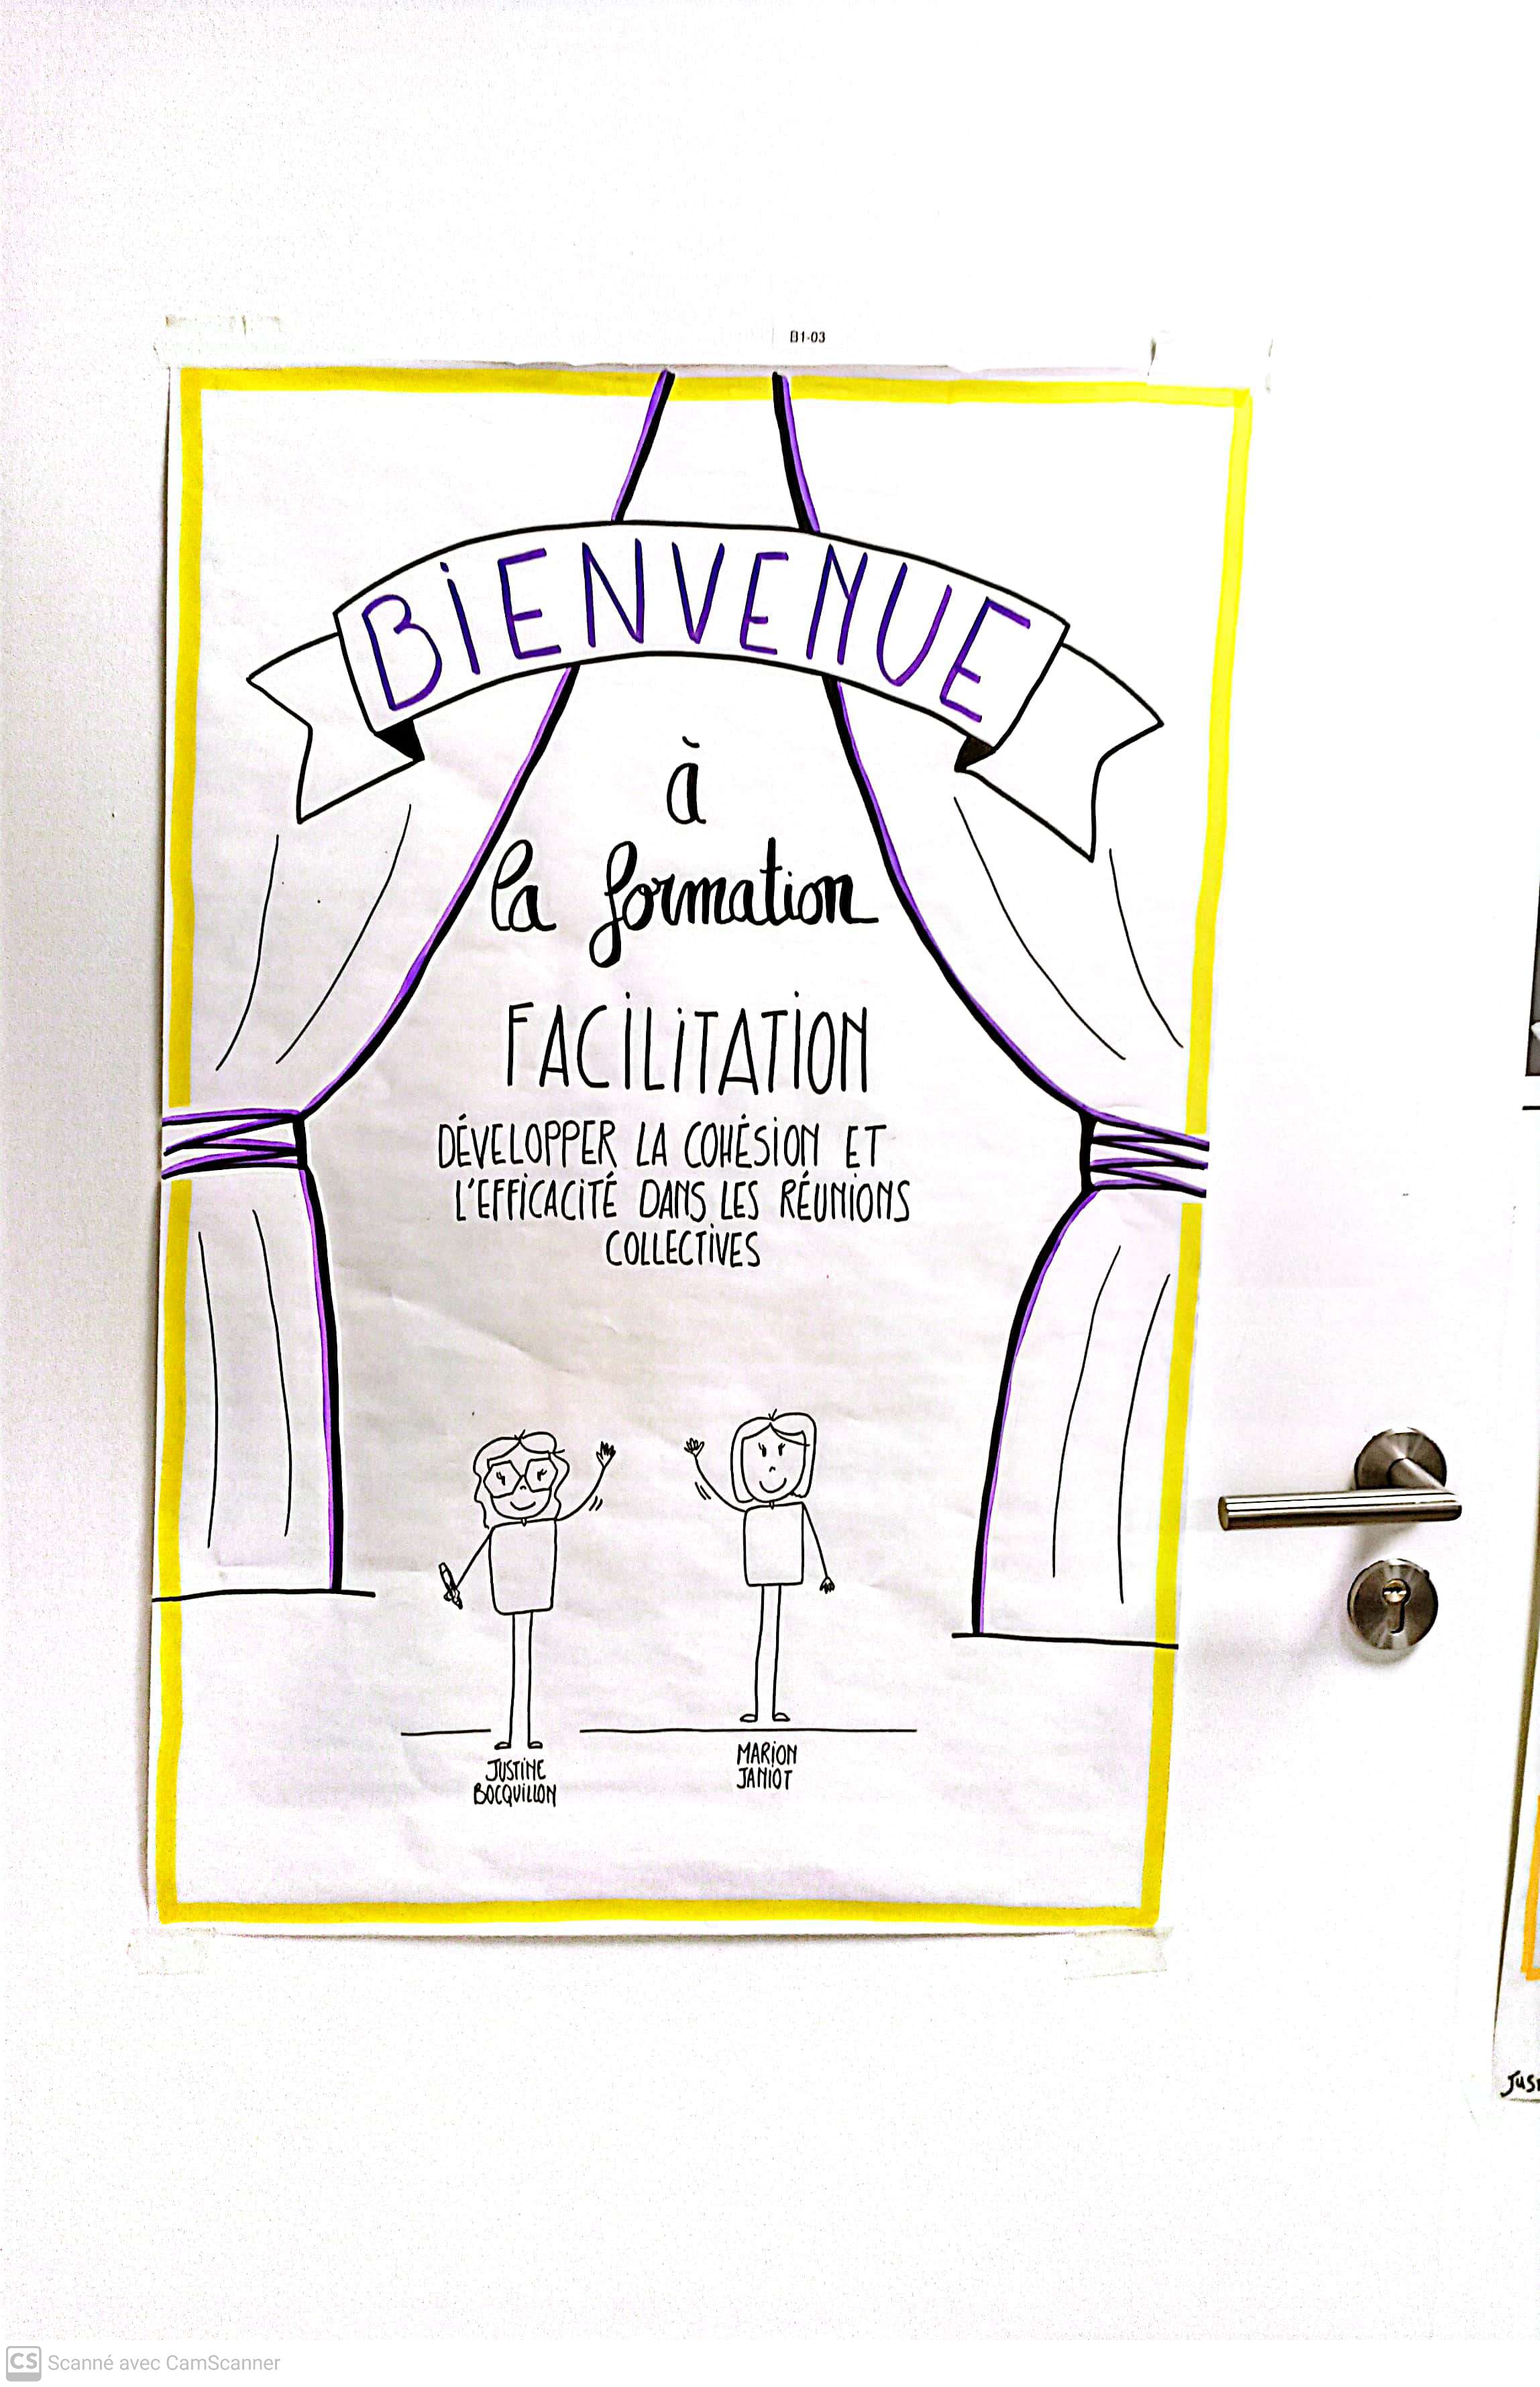 B1-03
BIENVENUE
à
la formation
FACILITATION
DÉVELOPPER LA COHÉSION ET
L'EFFICACITÉ DANS LES RÉUNIONS
COLLECTIVES
JUSTINE
BOCQUILLON
MARION
JANIOT
JUST
CS Scanné avec CamScanner